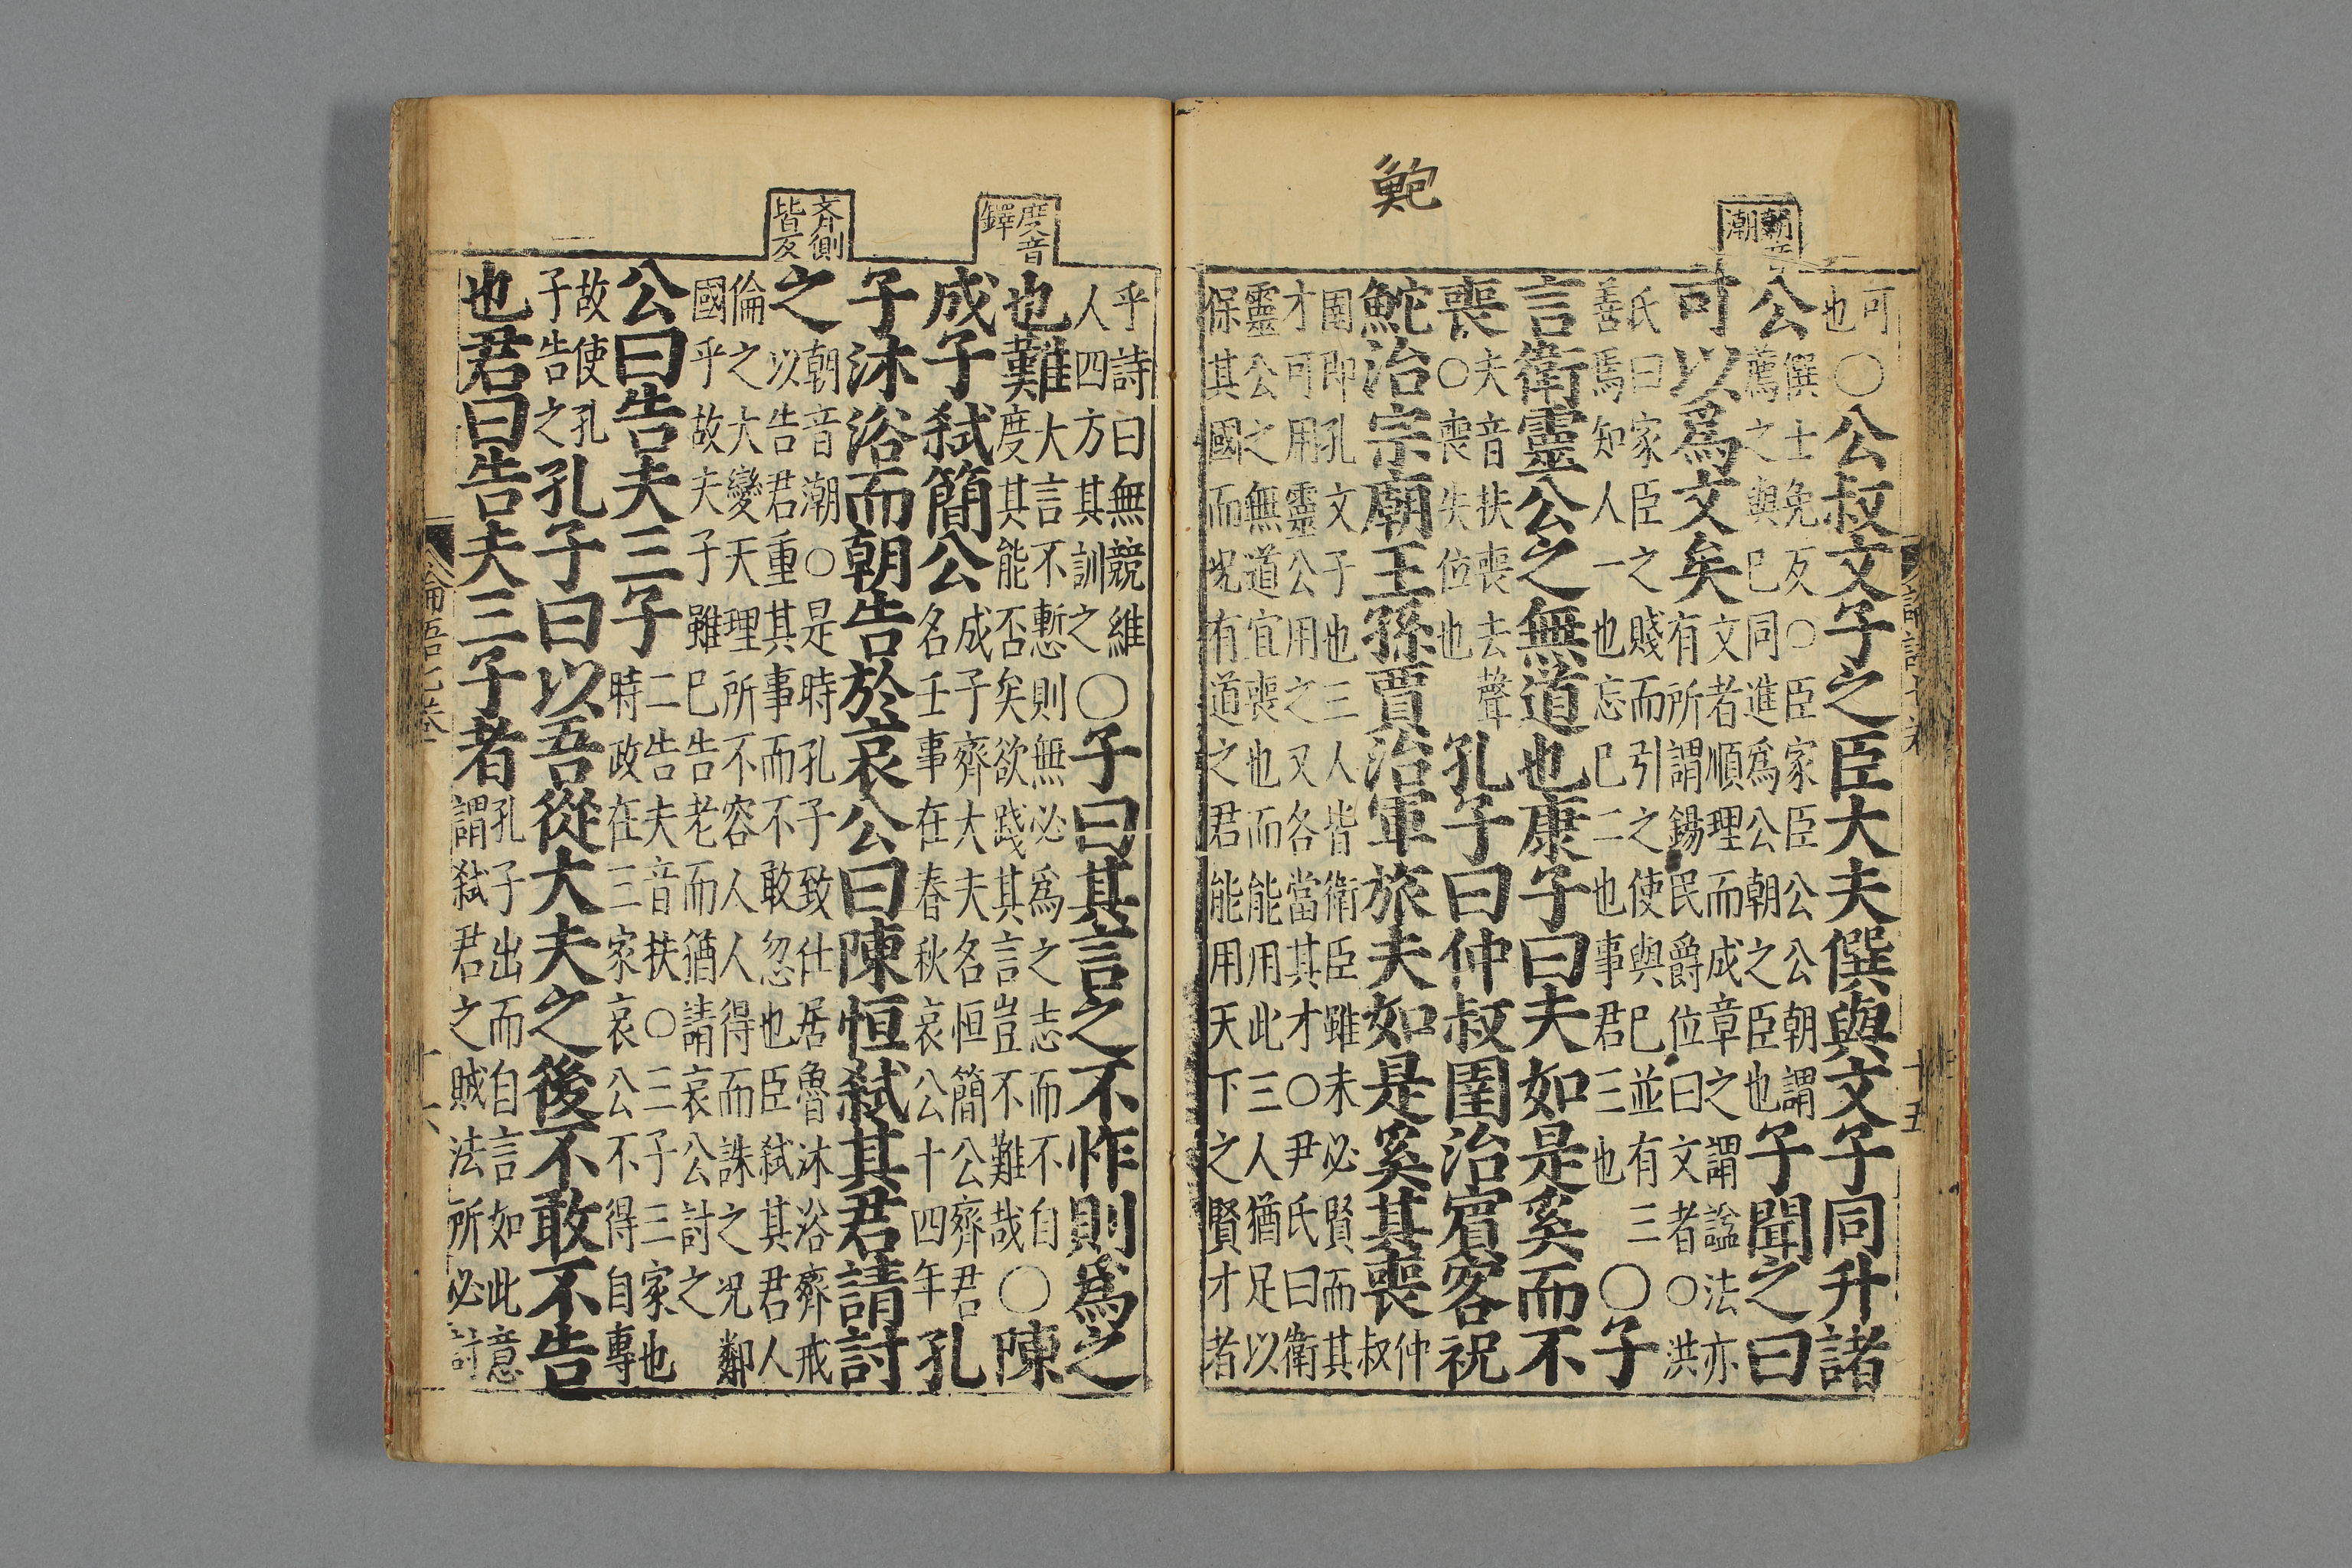 鮑
朝音
潮
可
也
○公叔文子之臣大夫僎與文子同升諸
公
僎士免反○臣家臣公公朝謂
薦之與己同進爲公朝之臣也
子聞之曰
可以爲文矣
文者順理而成章之謂諡法亦
有所謂錫民爵位曰文者○洪
氏曰家臣之賤而引之使與已並有三
善焉知人一也忘已二也事君三也
○子
言衛靈公之無道也康子曰夫如是奚而不
喪
夫音扶喪去聲
○喪失位也
孔子曰仲叔圉治賓客祝
鮀治宗廟王孫賈治軍旅夫如是奚其喪
仲
叔
圉即孔文子也三人皆衛臣雖未必賢而其
才可用靈公用之又各當其才○尹氏曰衛
靈公之無道宜喪也而能用此三人猶足以
保其國而况有道之君能用天下之賢才者
度音
鐸
齊側
皆反
乎詩曰無競維
人四方其訓之
○子曰其言之不怍則爲之
也難
大言不慙則無必爲之志而不自
度其能否矣欲踐其言豈不難哉
○陳
成子弑簡公
成子齊大夫名恒簡公齊君
名壬事在春秋哀公十四年
孔
子沐浴而朝告於哀公曰陳恒弑其君請討
之
朝音潮○是時孔子致仕居魯沐浴齊戒
以告君重其事而不敢忽也臣弑其君人
倫之大變天理所不容人人得而誅之况鄰
國乎故夫子雖巳告老而猶請哀公討之
公曰告夫三子
二告夫音扶○三子三家也
時政在三家哀公不得自專
故使孔
子告之
孔子曰以吾從大夫之後不敢不告
也君曰告夫三子者
孔子出而自言如此意
謂弑君之賊法所必討